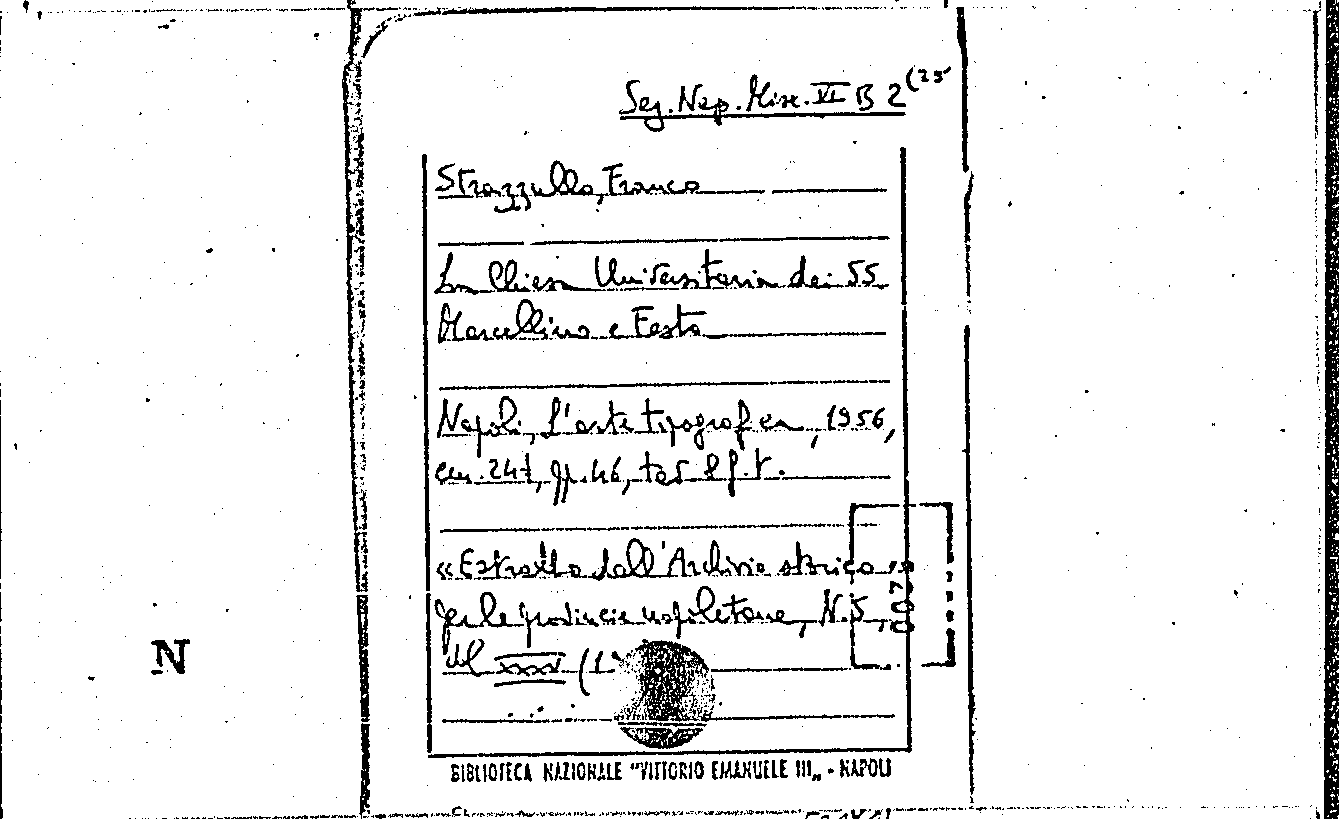 Sez. Nap. Misc. VI B 2 (25
Strazzullo, Franco
La Chiesa Universitaria dei SS.
Marcellino e Festo
Napoli, L'arte tipografica, 1956,
cm. 24½, pp. 46, tav. 8 f.t.
«Estratto dall'Archivio storico
per le provincie napoletane, N.S.,
Vol XXXV (1
N
BIBLIOTECA NAZIONALE "VITTORIO EMANUELE III„ - NAPOLI